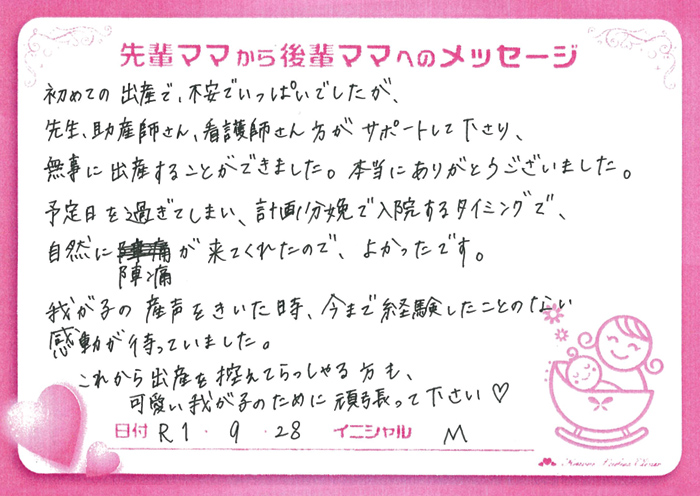 先輩ママから後輩ママへのメッセージ
初めての出産で、不安でいっぱいでしたが、
先生、助産師さん、看護師さん方がサポートして下さり、
無事に出産することができました。本当にありがとうございました。
予定日を過ぎてしまい、計画分娩で入院するタイミングで、
自然に陣痛が来てくれたので、よかったです。
我が子の産声をきいた時、今まで経験したことのない
感動が待っていました。
これから出産を控えてらっしゃる方も、
可愛い我が子のために頑張って下さい♡
日付 R1.9.28 イニシャル M